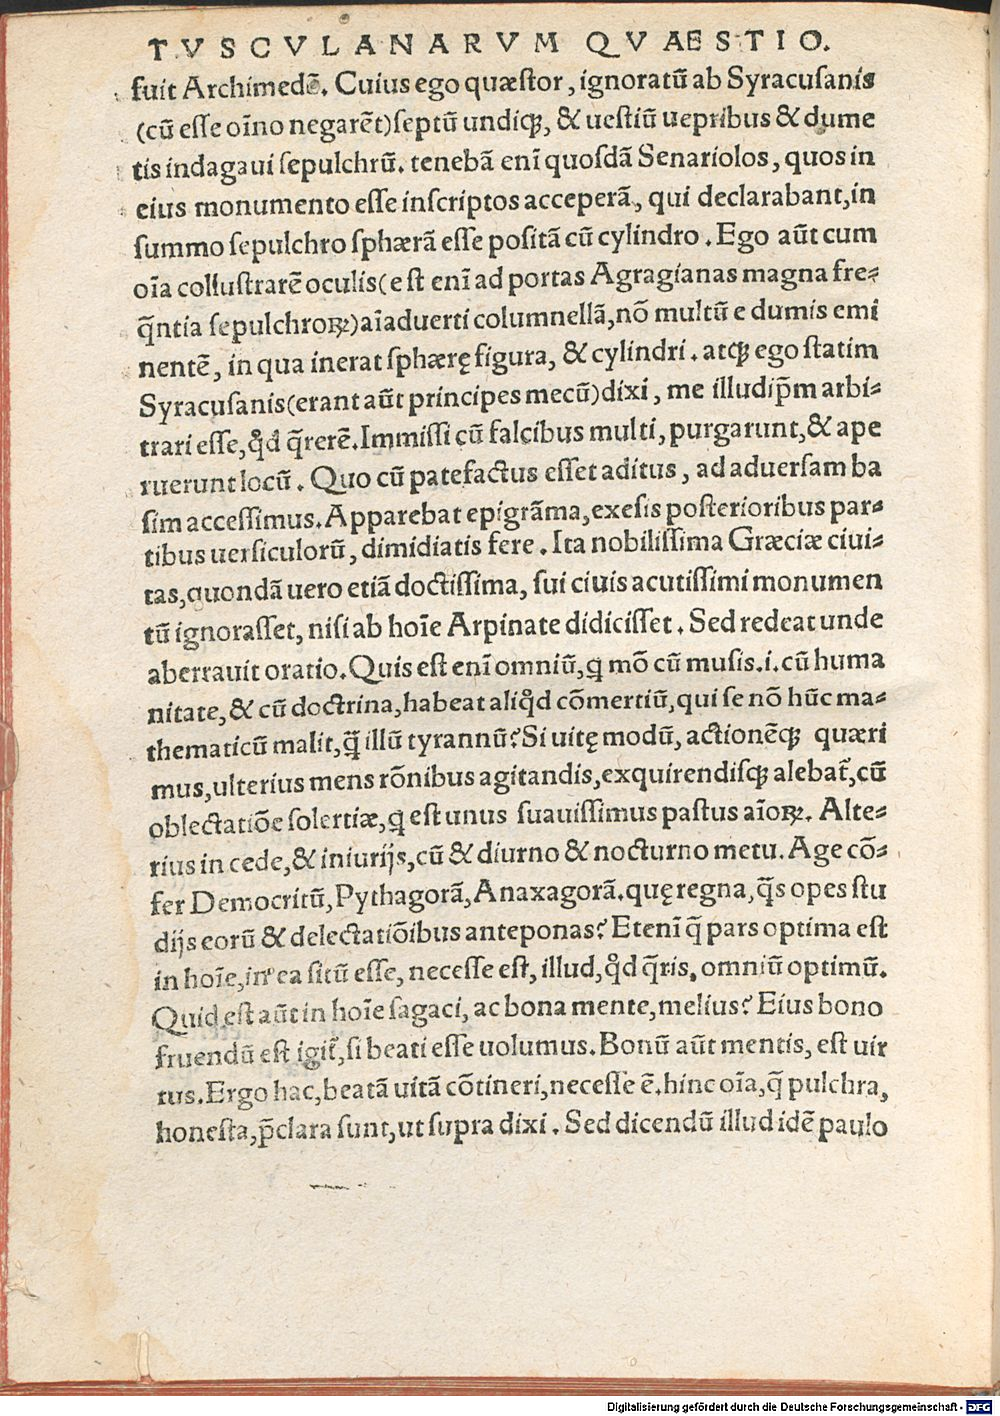 TVSCVLANARVM QVAESTIO.
fuit Archimedē. Cuius ego quæstor, ignoratū ab Syracusanis
(cū esse oīno negarēt) septū undiqꝫ, & uestiū uepribus & dume
tis indagaui sepulchrū. tenebā enī quosdā Senariolos, quos in
eius monumento esse inscriptos acceperā, qui declarabant, in
summo sepulchro sphærā esse positā cū cylindro. Ego aūt cum
oīa collustrarē oculis (est enī ad portas Agragianas magna fre-
q̄ntia sepulchroꝝ) aīaduerti columnellā, nō multū e dumis emi
nentē, in qua inerat sphærę figura, & cylindri. atqꝫ ego statim
Syracusanis (erant aūt principes mecū) dixi, me illudip̄m arbi-
trari esse, qđ q̄rerē. Immissi cū falcibus multi, purgarunt, & ape
ruerunt locū. Quo cū patefactus esset aditus, ad aduersam ba
sim accessimus. Apparebat epigrāma, exesis posterioribus par-
tibus uersiculorū, dimidiatis fere. Ita nobilissima Græciæ ciui-
tas, quondā uero etiā doctissima, sui ciuis acutissimi monumen
tū ignorasset, nisi ab hoīe Arpinate didicisset. Sed redeat unde
aberrauit oratio. Quis est enī omniū, ꝗ mō cū musis. i. cū huma
nitate, & cū doctrina, habeat aliqđ cōmertiū, qui se nō hūc ma-
thematicū malit, q̄ illū tyrannū? Si uitę modū, actionēqꝫ quæri
mus, ulterius mens rōnibus agitandis, exquirendisqꝫ alebat᷑, cū
oblectatiōe solertiæ, ꝗ est unus suauissimus pastus aīoꝝ. Alte-
rius in cede, & iniurijs, cū & diurno & nocturno metu. Age cō-
fer Democritū, Pythagorā, Anaxagorā. quę regna, q̄s opes stu
dijs eorū & delectatiōibus anteponas? Etenī q̄ pars optima est
in hoīe, in ea sitū esse, necesse est, illud, qđ q̄ris, omniū optimū.
Quid est aūt in hoīe sagaci, ac bona mente, melius? Eius bono
fruendū est igit᷑, si beati esse uolumus. Bonū aūt mentis, est uir
tus. Ergo hac, beatā uitā cōtineri, necesse ē. hinc oīa, q̄ pulchra,
honesta, p̄clara sunt, ut supra dixi. Sed dicendū illud idē paulo
Digitalisierung gefördert durch die Deutsche Forschungsgemeinschaft - DFG